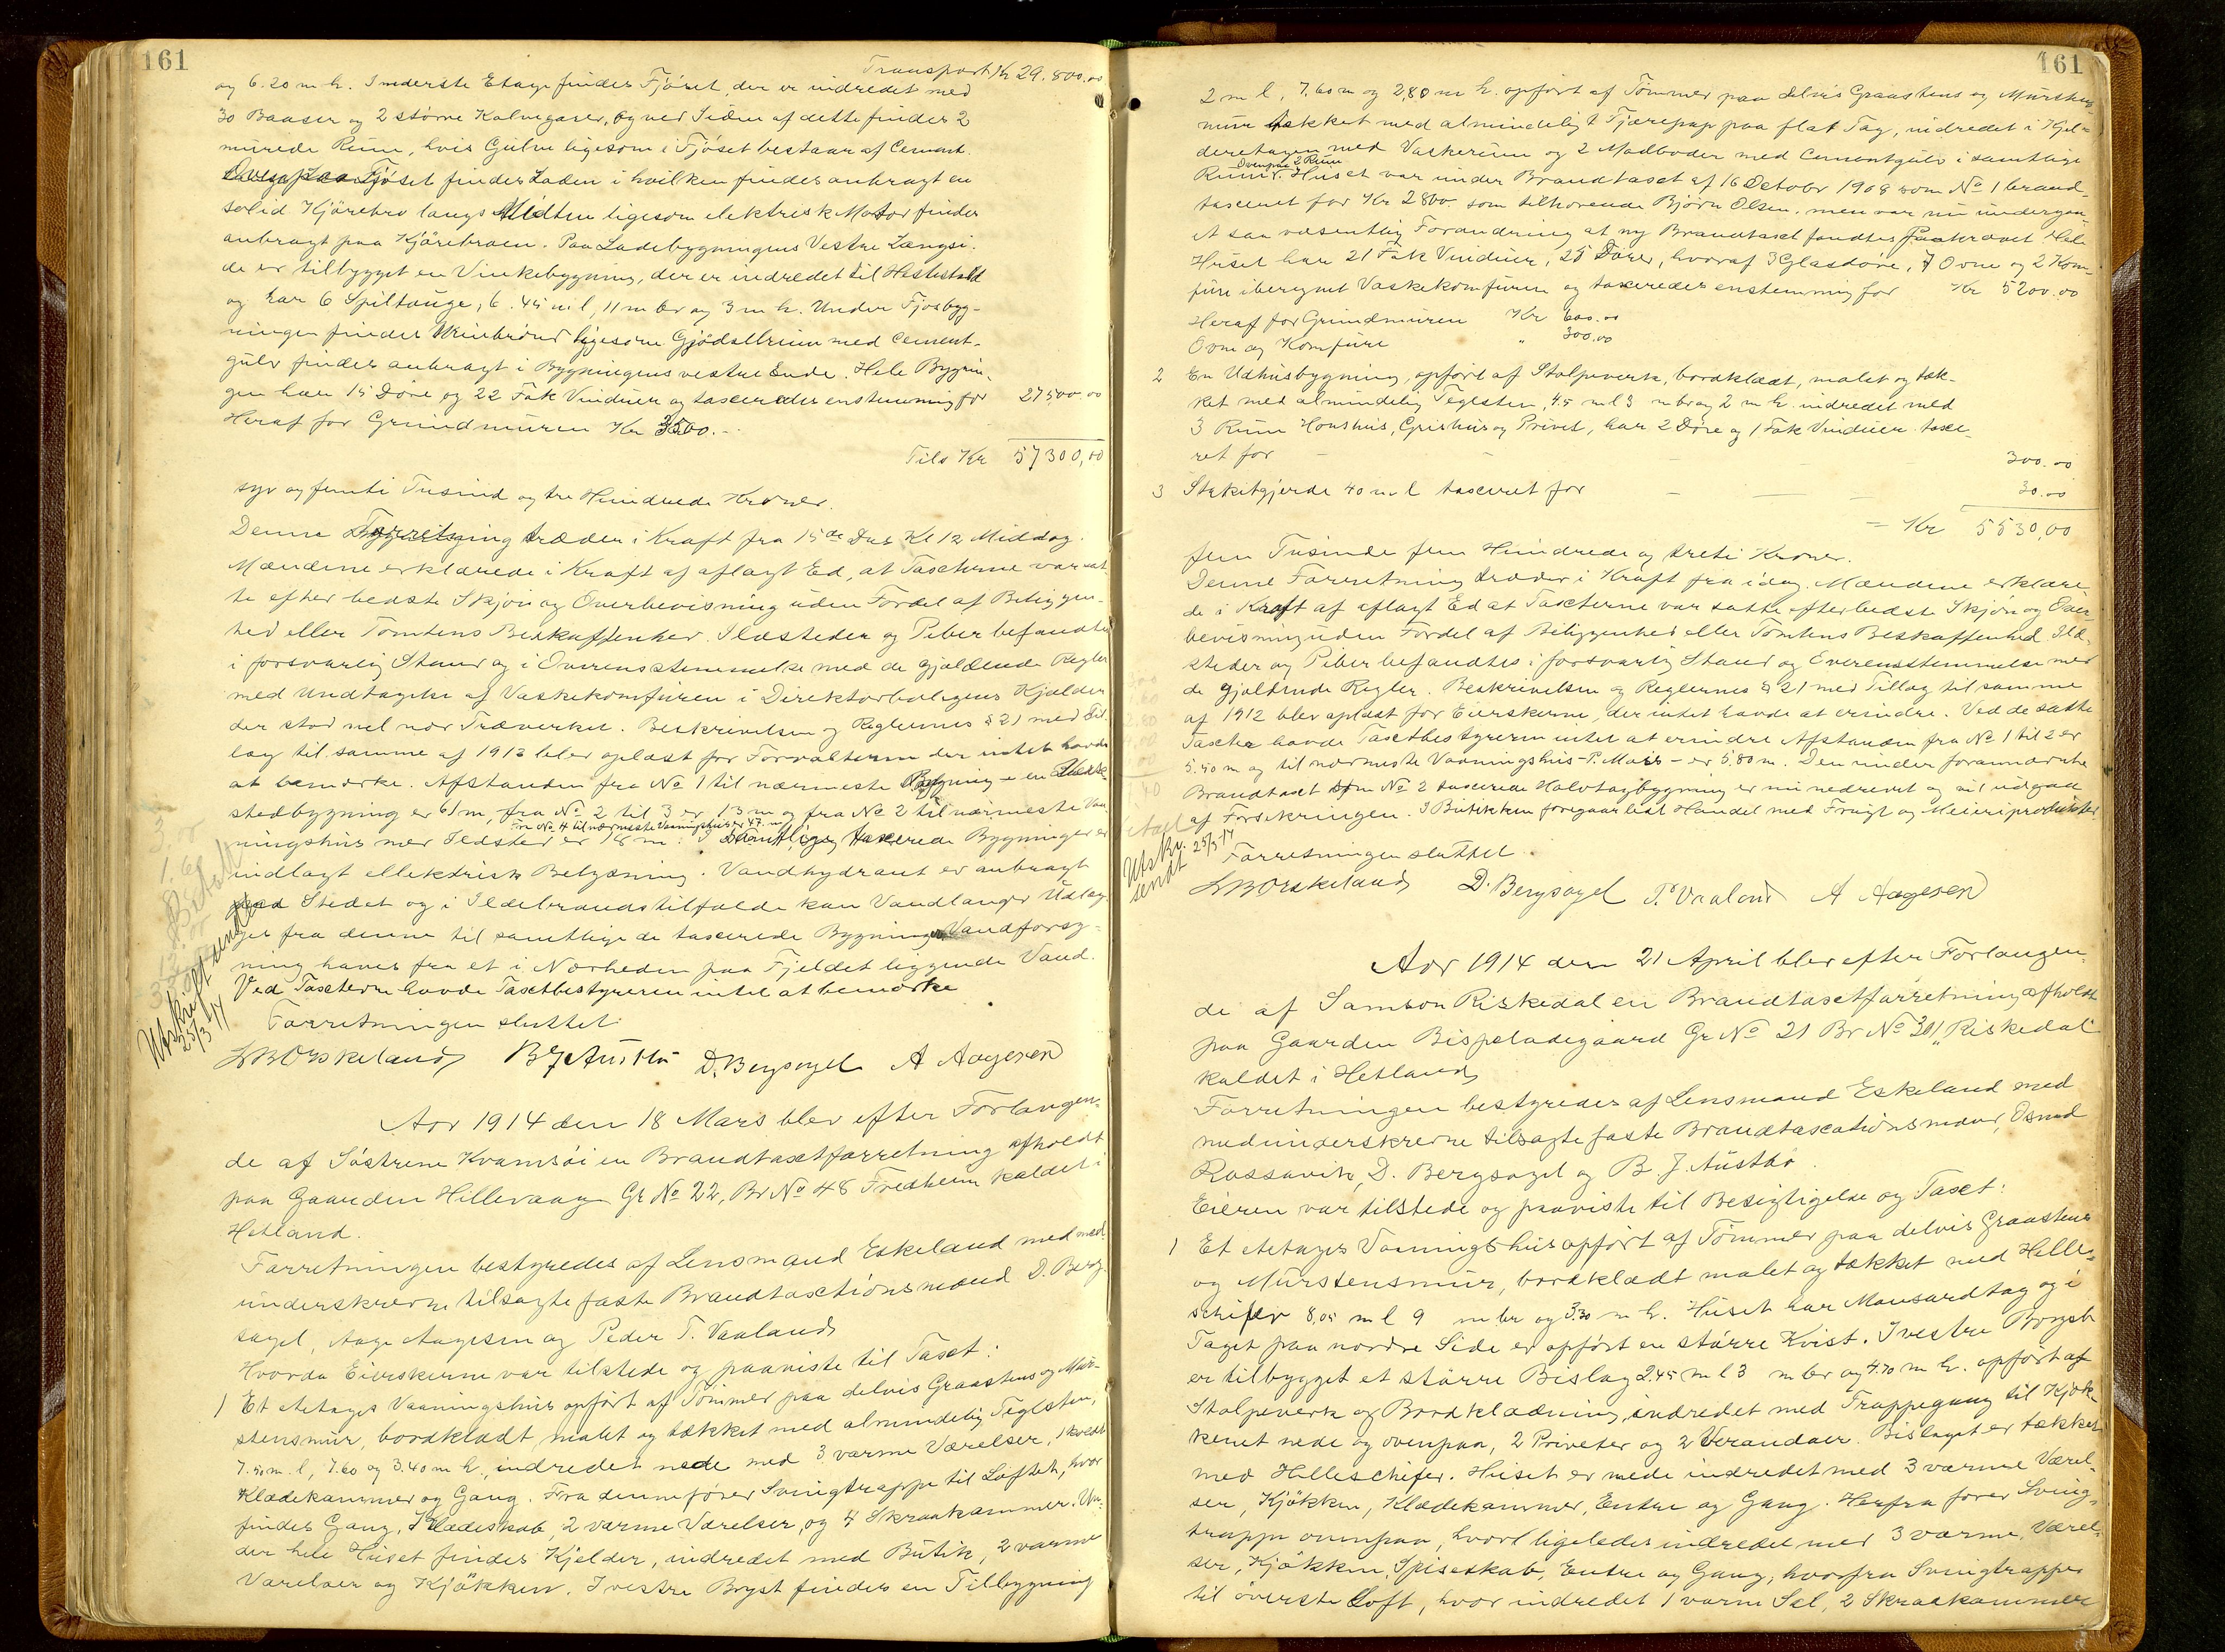 161
Transport Kr 29.800.00
og 6.20 m h. I nederste Etage findes Fjöset, der er indredet med
30 Baaser og 2 större Kalvegarer, og ved Siden af dette findes 2
murede Rum, hvis Gulve ligesom i Fjöset bestaar af Cement.
Ovenpaa Fjöset findes Laden i hvilken findes anbragt en
solid Kjörebro langs Midten ligesom elektrisk Motor findes
anbragt paa Kjörebroen. Paa Ladebygningens Vestre Langsi-
de er tilbygget en Vinkebygning, der er indredet til Hestestald
og har 6 Spiltauge, 6.45 m l, 11 m br og 3 m h. Under Fjösbyg-
ningen findes Urinbrönd ligesom Gjödselrum med Cement-
gulv findes anbragt i Bygningens vestre Ende. Hele Bygnin-
gen har 15 Döre og 22 Fak Vinduer og taxeredes enstemmig for 27500.00
Heraf for Grundmuren Kr 3500.-
Tils Kr 57300,00
syv og femti Tusind og tre Hundrede Kroner.
Denne Forretning træder i Kraft fra 15de Ds Kl 12 Middag.
Mændene erklærede i Kraft af aflagt Ed, at Taxterne var sat-
te efter bedste Skjön og Overbevisning uden Fordel af Beliggen-
hed eller Tomtens Beskaffenhed. Ildsteder og Piber befandtes
i forsvarlig Stand og i Overensstemmelse med de gjældende Regler
med Undtagelse af Vaskekomfuren i Direktörboligens Kjælder
der stod vel nær Træverket. Beskrivelsen og Reglernes § 21 med Til-
læg til samme af 1912 blev oplæst for Forvalteren der intet havde
at bemærke. Afstanden fra No 1 til nærmeste Bygning - en Verk-
stedbygning er 61 m, fra No 2 til 3 er 13 m og fra No 2 til nærmeste Vaa-
Fra No 4 til nærmeste Vaaningshus er 47 m
ningshus med Ildsted er 18 m. I samtlige taxerede Bygninger er
indlagt ellektrisk Belysning. Vandhydrant er anbragt
ved Stedet og i Ildebrandstilfælde kan Vandslanger Udlæg-
ges fra denne til samtlige de taxerede Bygninger. Vandforsy-
ning haves fra et i Nærheden paa Fjeldet liggende Vand.
Ved Taxterne havde Taxtbestyreren intet at bemærke
Forretningen sluttet.
Utskrift sendt
25/3 14
L B Eskeland B J Austbö D. Bergsagel A Aagesen
Aar 1914 den 18 Mars blev efter Forlangen-
de af Söstrene Kvamsöi en Brandtaxtforretning afholdt
paa Gaarden Hillevaag Gr No 22, Br No 48 Fredheim kaldet i
Hetland.
Forretningen bestyredes af Lensmand Eskeland med med-
underskrevne tilsagte faste Brandtaxtionsmænd D. Berg-
sagel, Aage Aagesen og Peder T. Vaaland
Hvorda Eierskerne var tilstede og paaviste til Taxt:
1 Et etages Vaaningshus opfört af Tömmer paa delvis Graastens og Mur-
stensmur, bordklædt, malet og tækket med almindelig Teglsten,
7.50 m. l, 7.60 og 3.40 m h., indredet nede med 3 varme Værelser, 1 koldt
Klædekammer og Gang. Fra denne förer Svingtrappe til Loftet, hvor
findes Gang, 1 Klædeskab, 2 varme Værelser, og 4 Skraakammer. Un-
der hele Huset findes Kjelder, indredet med Butik, 2 varme
Værelser og Kjökken. I vestre Bryst findes en Tilbygning
161
2 m l, 7.60 m og 2,80 m h. opfört af Tömmer paa delvis Graastens og Murstens-
mur tækket med almindeligt Tjærepap paa flat Tag, indredet i Kjel-
deretagen med Vaskerum og 2 Madboder med Cementgulv i samtlige
Ovenpaa 2 Rum
Rum. Huset var under Brandtaxt af 16 Octobr 1908 som No 1 brand-
taxeret for Kr 2800 som tilhörende Björn Olsen. men var nu undergaa-
et saa væsentlig Forandring at ny Brandtaxt fandtes Paakrævet. Hele
Huset har 21 Fak Vinduer, 25 Dörer, hvoraf 3 Glasdöre, 7 Ovne og 2 Kom-
fure iberegnet Vaskekomfuren og taxeredes enstemmig for Kr 5200.00
Heraf for Grundmuren Kr 600.00
Ovne og Komfure " 300.00
2 En Udhusbygning, opfört af Stolpeverk, bordklædt, malet og tæk-
ket med almindelig Teglsten, 4.5 m l 3 m br og 2 m h. indredet med
3 Rum Hönshus, Grishus og Privet, har 2 Döre og 1 Fak Vinduer. taxe-
ret for - - - - 300.00
3 Stakitgjerde 40 m l taxeret for - - - 30.00
= Kr 5530,00
fem Tusinde fem Hundrede og treti Kroner.
Denne Forretning træder i Kraft fra idag. Mændene erklære-
de i Kraft af aflagt Ed at Taxterne var satte efter bedste Skjön og Over-
bevisning uden Fordel af Beliggenhed eller Tomtens Beskaffenhed. Ild-
steder og Piber befandtes i forsvarlig Stand og Overensstemmelse med
de gjældende Regler. Beskrivelsen og Reglernes § 21 med Tillæg til samme
af 1912 blev oplæst for Eierskerne, der intet havde at erindre. Ved de satte
Taxter havde Taxtbestyreren intet at erindre Afstanden fra No 1 til 2 er
5.50 m og til nærmeste Vaaningshus - P. Moi's - er 5,80 m. Den under forannævnte
Brandtaxt som No 2 taxerede Halvtagbygning er nu nedrevet og vil udgaa
af Forsikringen. I Butikken foregaar lidt Handel med Frugt og Meieriprodukter
Utskr. 25/3 14
sendt
Forretningen sluttet.
L B Eskeland D. Bergsagel P. T. Vaaland A Aagesen
Aar 1914 den 21 April blev efter Forlangen-
de af Samson Riskedal en Brandtaxtforretning afholdt
paa Gaarden Bispeladegaard Gr No 21 Br No 301 "Riskedal"
kaldet i Hetland
Forretningen bestyredes af Lensmand Eskeland med
medunderskrevne tilsagte faste Brandtaxationsmænd, Osmd
Rossavik, D. Bergsagel og B. J. Austbö.
Eieren var tilstede og paaviste til Besigtigelse og Taxt:
1 Et etages Vaaningshus opfört af Tömmer paa delvis Graastens
og Murstensmur, bordklædt malet og tækket med Helle-
schifer 8,05 m l 9 m br og 3.30 m h. Huset har Mansardtag og i
Taget paa nordre Side er opfört en större Kvist. I vestre Bryst
er tilbygget et större Bislag 2.45 m l 3 m br og 4.70 m h. opfört af
Stolpeverk og Bordklædning, indredet med Trappegang til Kjök-
kenet nede og ovenpaa, 2 Priveter og 2 Verandaer. Bislaget er tækket
med Helleschifer. Huset er nede indredet med 3 varme Værel-
ser, Kjökken, Klædekammer, Entre og Gang. Herfra förer Sving-
trappe ovenpaa, hvor ligeledes indredet med 3 varme Værel-
ser, Kjökken, Spiseskab, Entre og Gang, hvorfra Svingtrappe
til överste Loft, hvor indredet 1 varm Sal, 2 Skraakammer